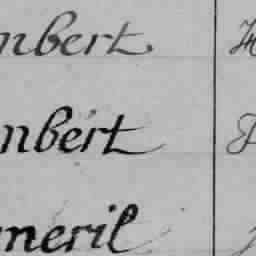 nbert
nbert
meril